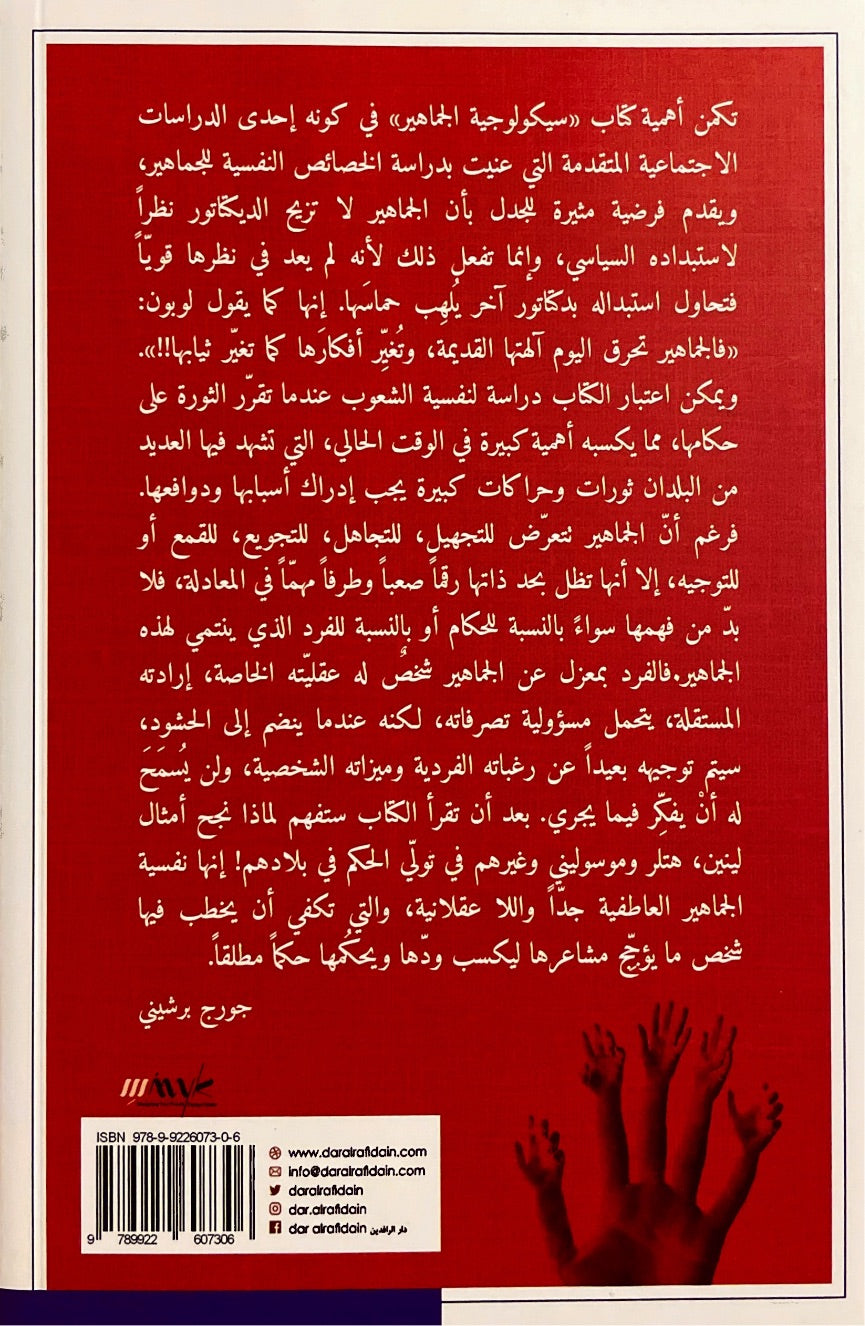 تكمن أهمية كتاب «سيكولوجية الجماهير» في كونه إحدى الدراسات
الاجتماعية المتقدمة التي عنيت بدراسة الخصائص النفسية للجماهير،
ويقدم فرضية مثيرة للجدل بأن الجماهير لا تزيح الديكتاتور نظراً
لاستبداده السياسي، وإنما تفعل ذلك لأنه لم يعد في نظرها قويّاً
فتحاول استبداله بدكتاتور آخر يُلهِب حماسَها. إنها كما يقول لوبون:
«فالجماهير تحرق اليوم آلهتها القديمة، وتُغيِّر أفكارَها كما تغيّر ثيابها!!».
ويمكن اعتبار الكتاب دراسة لنفسية الشعوب عندما تقرّر الثورة على
حكامها، مما يكسبه أهمية كبيرة في الوقت الحالي، التي تشهد فيها العديد
من البلدان ثورات وحراكات كبيرة يجب إدراك أسبابها ودوافعها.
فرغم أنّ الجماهير تتعرّض للتجهيل، للتجاهل، للتجويع، للقمع أو
للتوجيه، إلا أنها تظل بحد ذاتها رقماً صعباً وطرفاً مهمّاً في المعادلة، فلا
بدّ من فهمها سواءً بالنسبة للحكام أو بالنسبة للفرد الذي ينتمي لهذه
الجماهير.فالفرد بمعزل عن الجماهير شخصٌ له عقليّته الخاصة، إرادته
المستقلة، يتحمل مسؤولية تصرفاته، لكنه عندما ينضم إلى الحشود،
سيتم توجيهه بعيداً عن رغباته الفردية وميزاته الشخصية، ولن يُسمَحَ
له أنْ يفكِّر فيما يجري. بعد أن تقرأ الكتاب ستفهم لماذا نجح أمثال
لينين، هتلر وموسوليني وغيرهم في تولّي الحكم في بلادهم! إنها نفسية
الجماهير العاطفية جدّاً واللا عقلانية، والتي تكفي أن يخطب فيها
شخص ما يؤجِّج مشاعرها ليكسب ودّها ويحكُمها حكماً مطلقاً.
جورج برشيني
ISBN 978-9-9226073-0-6
9 789922 607306
www.daralrafidain.com
info@daralrafidain.com
daralrafidain
dar.alrafidain
dar alrafidain دار الرافدين